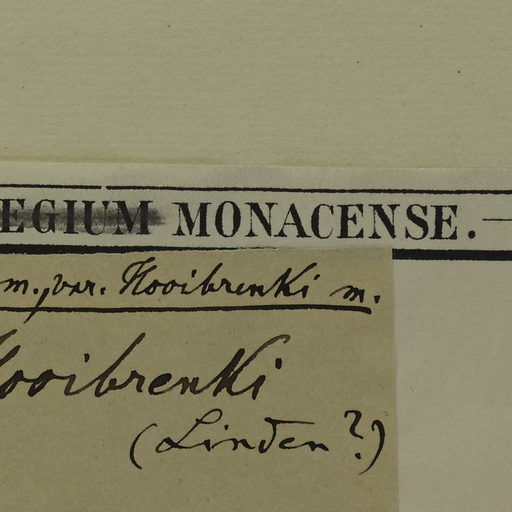 EGIUM MONACENSE.
m., var. Hooibrenki m.
Hooibrenki
(Linden?)